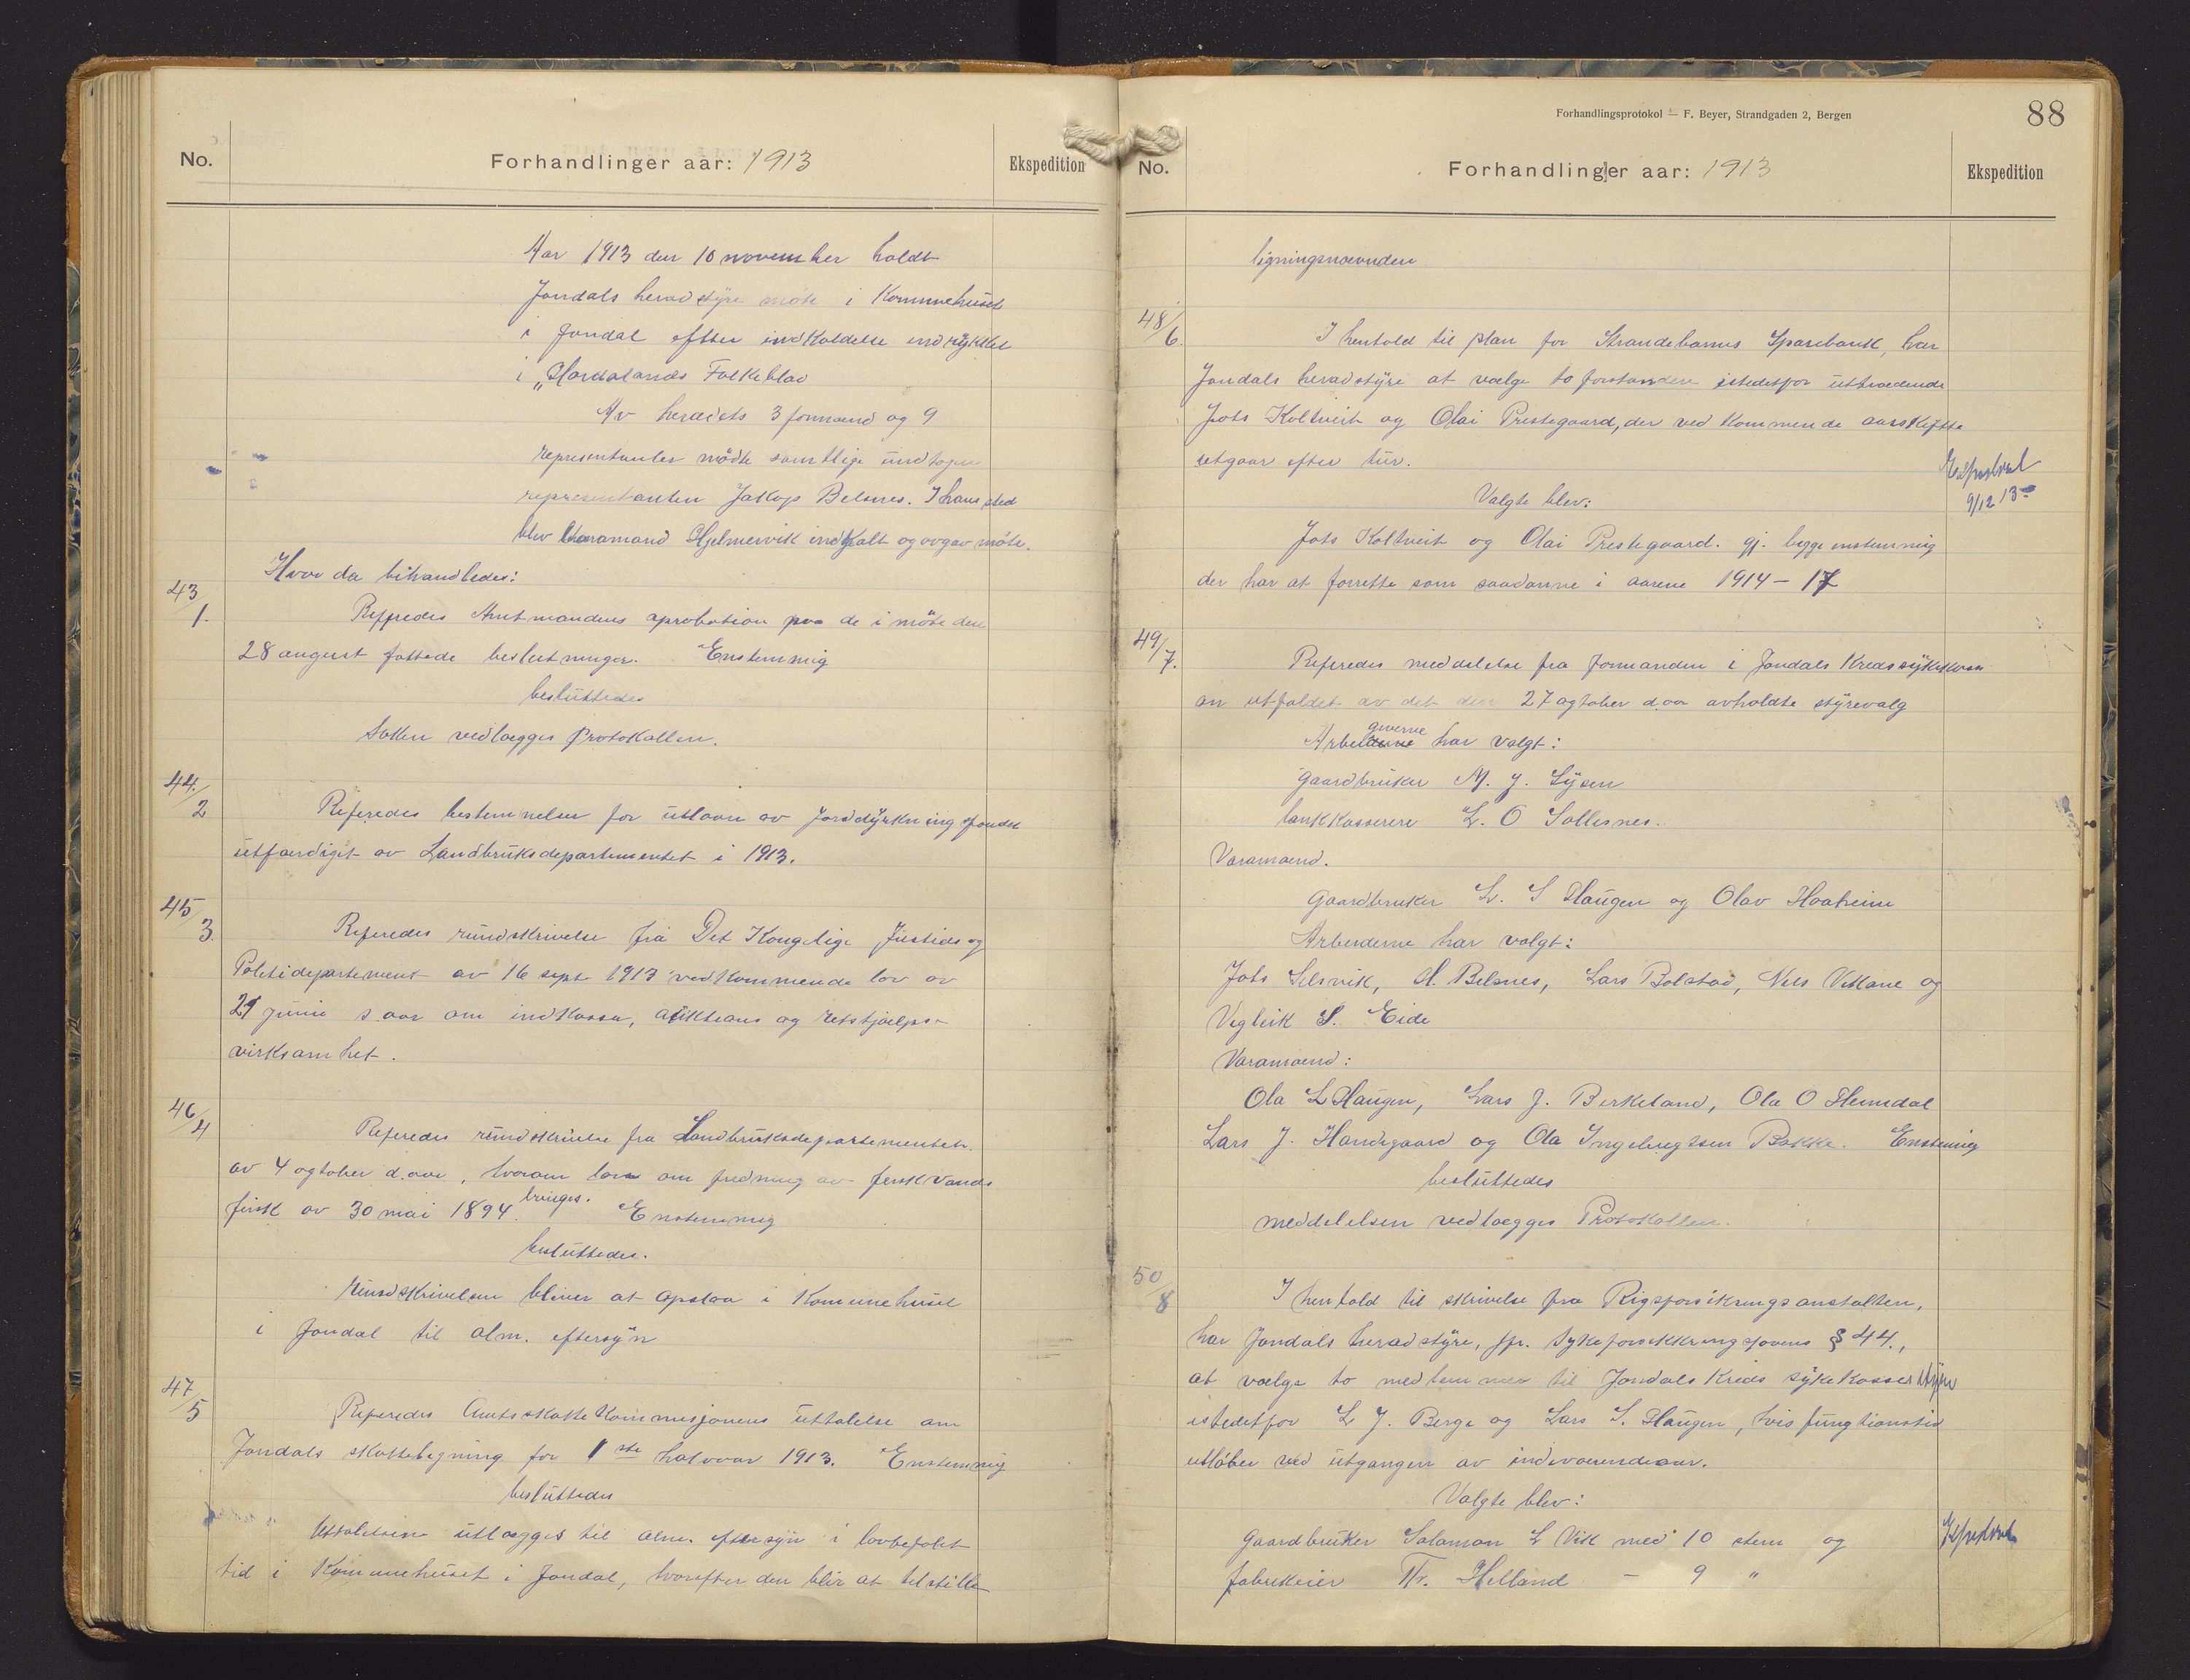 No.
Forhandlinger aar: 1913
Ekspedition
Aar 1913 den 10 november holdt
Jondals heradstyre møte i Kommnehuset
i Jondal efter indkaldelse indrykket
i „Hordalands Folkeblad
Av heradets 3 formænd og 9
representanter mødte samtlige undtagen
representanten Jakop Belsnes. I hans sted
blev Varamand Hjelmervik indkalt og avgav møte.
Hvor da bihandledes:
43/1.
Refferedes Amtmandens aprobation paa de i møte den
28 august fattede beslutninger. Enstemmig
besluttedes
Saken vedlægges Protokollen.
44./2
Referedes bestemmelser for utlaan av Jorddyrkningsfondet
utfærdiget av Landbruksdepartementet i 1913.
45/3.
Referedes rundskrivelse fra Det Kongelige Justids og
Politidepartement av 16 sept 1913 vedkommende lov av
21 junie s. aar om indkasso, auktions og retshjælps-
virksamhet.
46/4
Referedes rundskrivelse fra Landbruksdepartementet
av 4 ogtober d. aar, hvorom lova om fredning av ferskvands
fisk av 30 mai 1894 bringes. Enstemmig
besluttedes.
Rundskrivelsen bliver at opslaa i Kommunehuset
i Jondal til alm. eftersyn
47/5
Referedes Amtsskattekommisjonens uttalelse om
Jondals skattelegning for 1ste halvaar 1913. Enstemmig
besluttedes
Uttalelsen utlægges til alm. eftersyn i lovbefalet
tid i Kommunehuset i Jondal, hvorefter den blir at tilstille
Forhandlingsprotokol — F. Beyer, Strandgaden 2, Bergen
88
No.
Forhandlinger aar: 1913
Ekspedition
ligningsnævnden
48/6.
I henhold til plan for Strandebarms Sparebank, har
Jondals heradstyre at vælge to forstandere istedetfor uttrædende
Jots Koltveit og Olai Prestegaard, der ved kommende aarskifte
utgaar efter tur.
Ekspederet
9/12 13
Valgte blev:
Jots Koltveit og Olai Prestegaard. gj. begge enstemmig
der har at forrette som saadanne i aarene 1914 – 17
49/7.
Referedes meddelelse fra formanden i Jondals Kredssykekasse
om utfaldet av det den 27 ogtober d. aar avholdte styrevalg
Arbeidsgiverne har valgt:
Gaardbruker M. J. Lysen
bankkasserer L. O Sollesnes.
Varamænd.
Gaardbruker L. S Haugen og Olav Haaheim
Arbeiderne har valgt:
Jots Selsvik, H. Belsnes, Lars Bolstad, Nils Vikane og
Vegleik S. Eide
Varamænd:
Ola L Haugen, Lars J. Birkeland, Ola O Flemdal
Lars J. Handegaard og Ola Ingebregtsen Bakke. Enstemmig
besluttedes
meddelelsen vedlægges Protokollen.
50/8
I henhold til skrivelse fra Rigsforsikringsanstalten,
har Jondals heradstyre, jfr. Sykeforsikkringslovens § 44.,
at vælge to medlemmer til Jondals Kreds sykekasses styre
istedetfor L J. Berge og Lars S. Haugen, hvis fungtionstid
utløber ved utgangen av indeværende aar.
Valgte blev:
Gaardbruker Salamon L Vik med 10 stem og
Ekspederet
fabrikeier Tr. Helland – 9 "